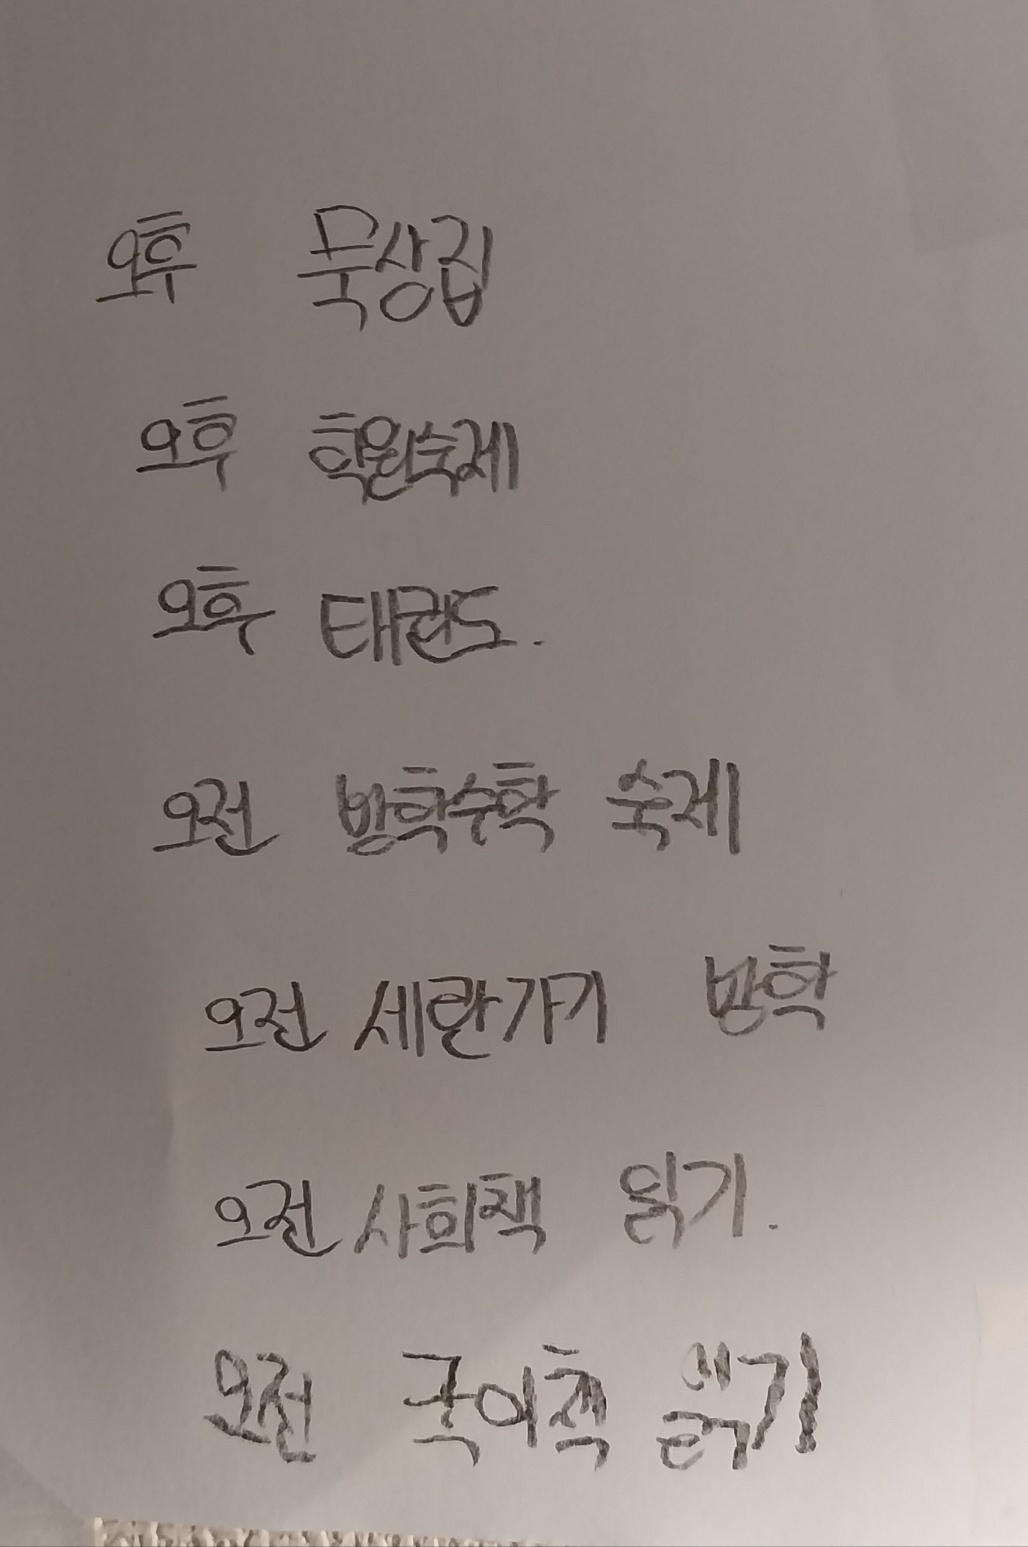 오후 묵상집
오후 학원숙제
오후 태권도.
오전 방학수학 숙제
오전 세란가기 방학
오전 사회책 읽기.
오전 국어책 읽기